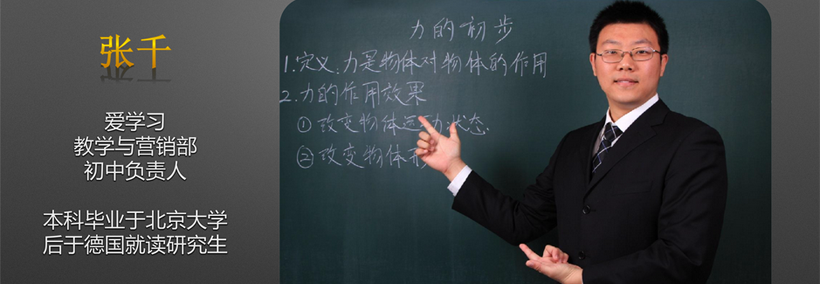 张千
爱学习
教学与营销部
初中负责人
本科毕业于北京大学
后于德国就读研究生
力的初步
1.定义:力是物体对物体的作用
2.力的作用效果
①改变物体运动状态.
②改变物体形